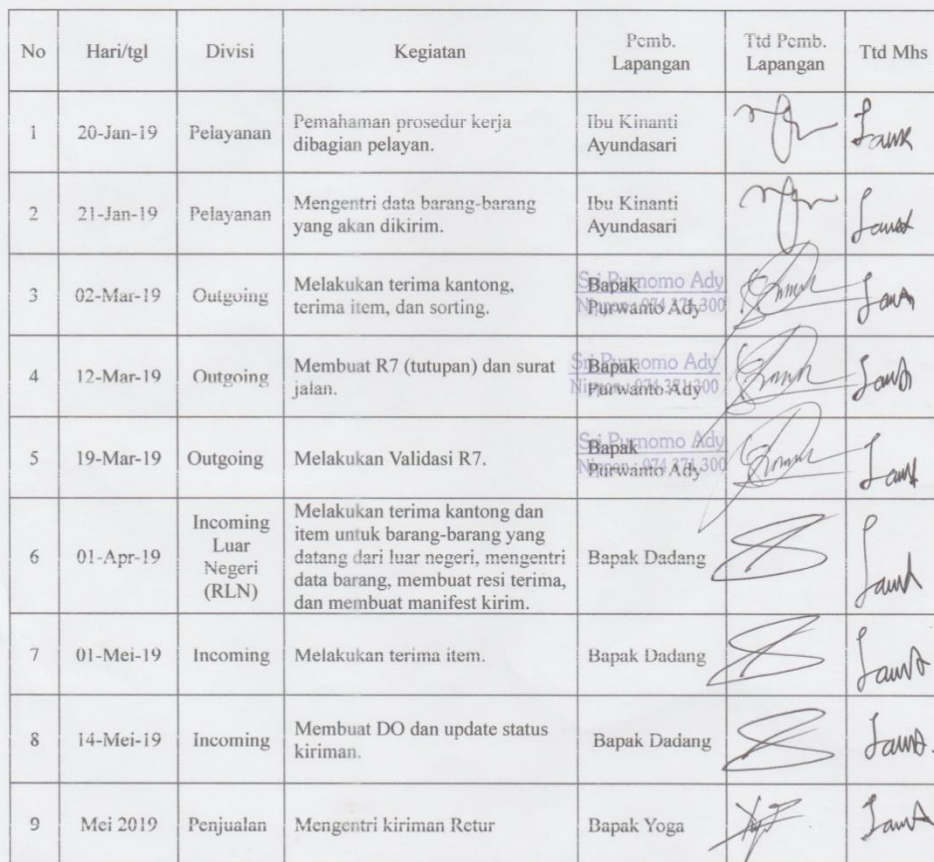 No Hari/tgl Divisi Kegiatan Pemb. Lapangan Ttd Pemb. Lapangan Ttd Mhs
1 20-Jan-19 Pelayanan Pemahaman prosedur kerja
dibagian pelayan. Ibu Kinanti
Ayundasari
2 21-Jan-19 Pelayanan Mengentri data barang-barang
yang akan dikirim. Ibu Kinanti
Ayundasari
3 02-Mar-19 Outgoing Melakukan terima kantong,
terima item, dan sorting. Bapak
Purwanto Ady
Sri Purnomo Ady
Nippos : 974 371 300
4 12-Mar-19 Outgoing Membuat R7 (tutupan) dan surat
jalan. Bapak
Purwanto Ady
Sri Purnomo Ady
Nippos : 974 371 300
5 19-Mar-19 Outgoing Melakukan Validasi R7. Bapak
Purwanto Ady
Sri Purnomo Ady
Nippos : 974 371 300
6 01-Apr-19 Incoming
Luar
Negeri
(RLN) Melakukan terima kantong dan
item untuk barang-barang yang
datang dari luar negeri, mengentri
data barang, membuat resi terima,
dan membuat manifest kirim. Bapak Dadang
7 01-Mei-19 Incoming Melakukan terima item. Bapak Dadang
8 14-Mei-19 Incoming Membuat DO dan update status
kiriman. Bapak Dadang
9 Mei 2019 Penjualan Mengentri kiriman Retur Bapak Yoga